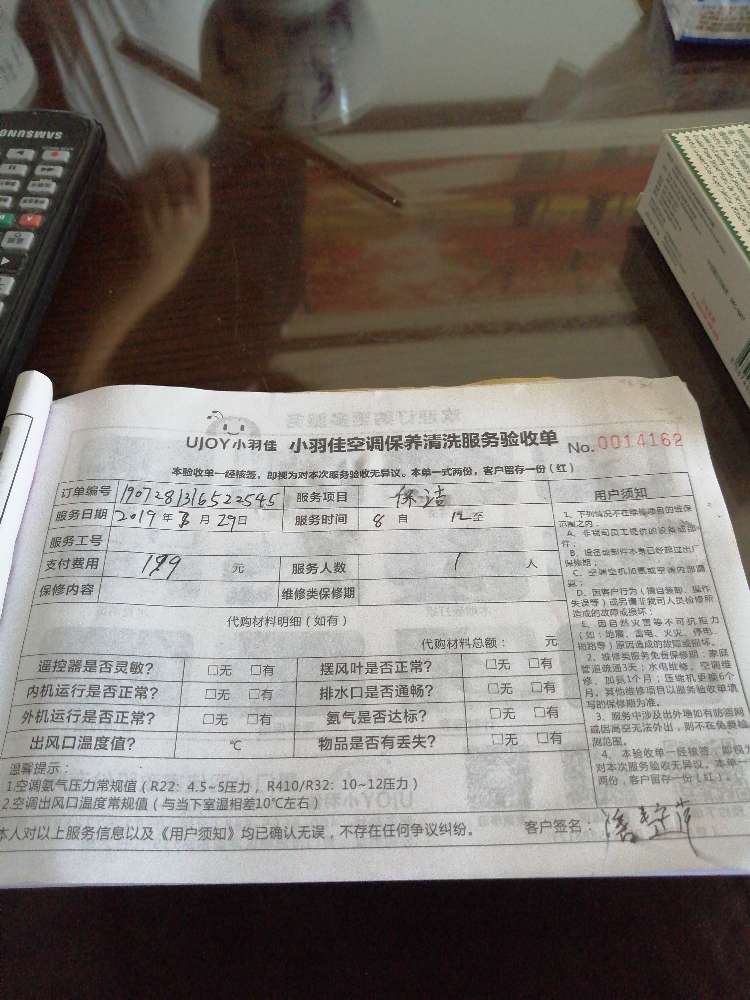 SAMSUNG
UJOY小羽佳 小羽佳空调保养清洗服务验收单 No.0014162
本验收单一经核签，即视为对本次服务验收无异议。本单一式两份，客户留存一份（红）
订单编号 190728131652​2545 服务项目 保洁
服务日期 2019年 月29日 服务时间 8自 12至
服务工号
支付费用 199 元 服务人数 1 人
保修内容 维修类保修期
代购材料明细（如有）
代购材料总额： 元
遥控器是否灵敏？ □无 □有 摆风叶是否正常？ □无 □有
内机运行是否正常？ □无 □有 排水口是否通畅？ □无 □有
外机运行是否正常？ □无 □有 氨气是否达标？ □无 □有
出风口温度值？ ℃ 物品是否有丢失？ □无 □有
温馨提示：
1.空调氨气压力常规值（R22：4.5~5压力，R410/R32：10~12压力）
2.空调出风口温度常规值（与当下室温相差10℃左右）
本人对以上服务信息以及《用户须知》均已确认无误，不存在任何争议纠纷。 客户签名：
用户须知
1、下列情况不在维修项目的维保
范围之内：
A、非我司员工提供的设备或部
件；
B、设备或部件本身已经超过出厂
保修期；
C、空调空机加氨或空调内部清
D、因客户行为（擅自装卸、操作
失误等）或另请非我司人员检修所
造成的故障或损坏；
E、因自然灾害等不可抗拒力
（如：地震、雷电、火灾、停电、
短路等）原因造成的故障或损坏。
2、维修类服务免售保修期：家庭
管道疏通3天；水电维修、空调维
修、加氨1个月；压缩机更换6个
月，其他维修项目以服务验收单填
写的保修期为准。
3、服务中涉及出外墙如有防盗网
或因高空无法外出，则不在免费检
测范围。
4、本验收单一经核签，即视为
对本次服务验收无异议。本单一式
两份，客户留存一份（红）。